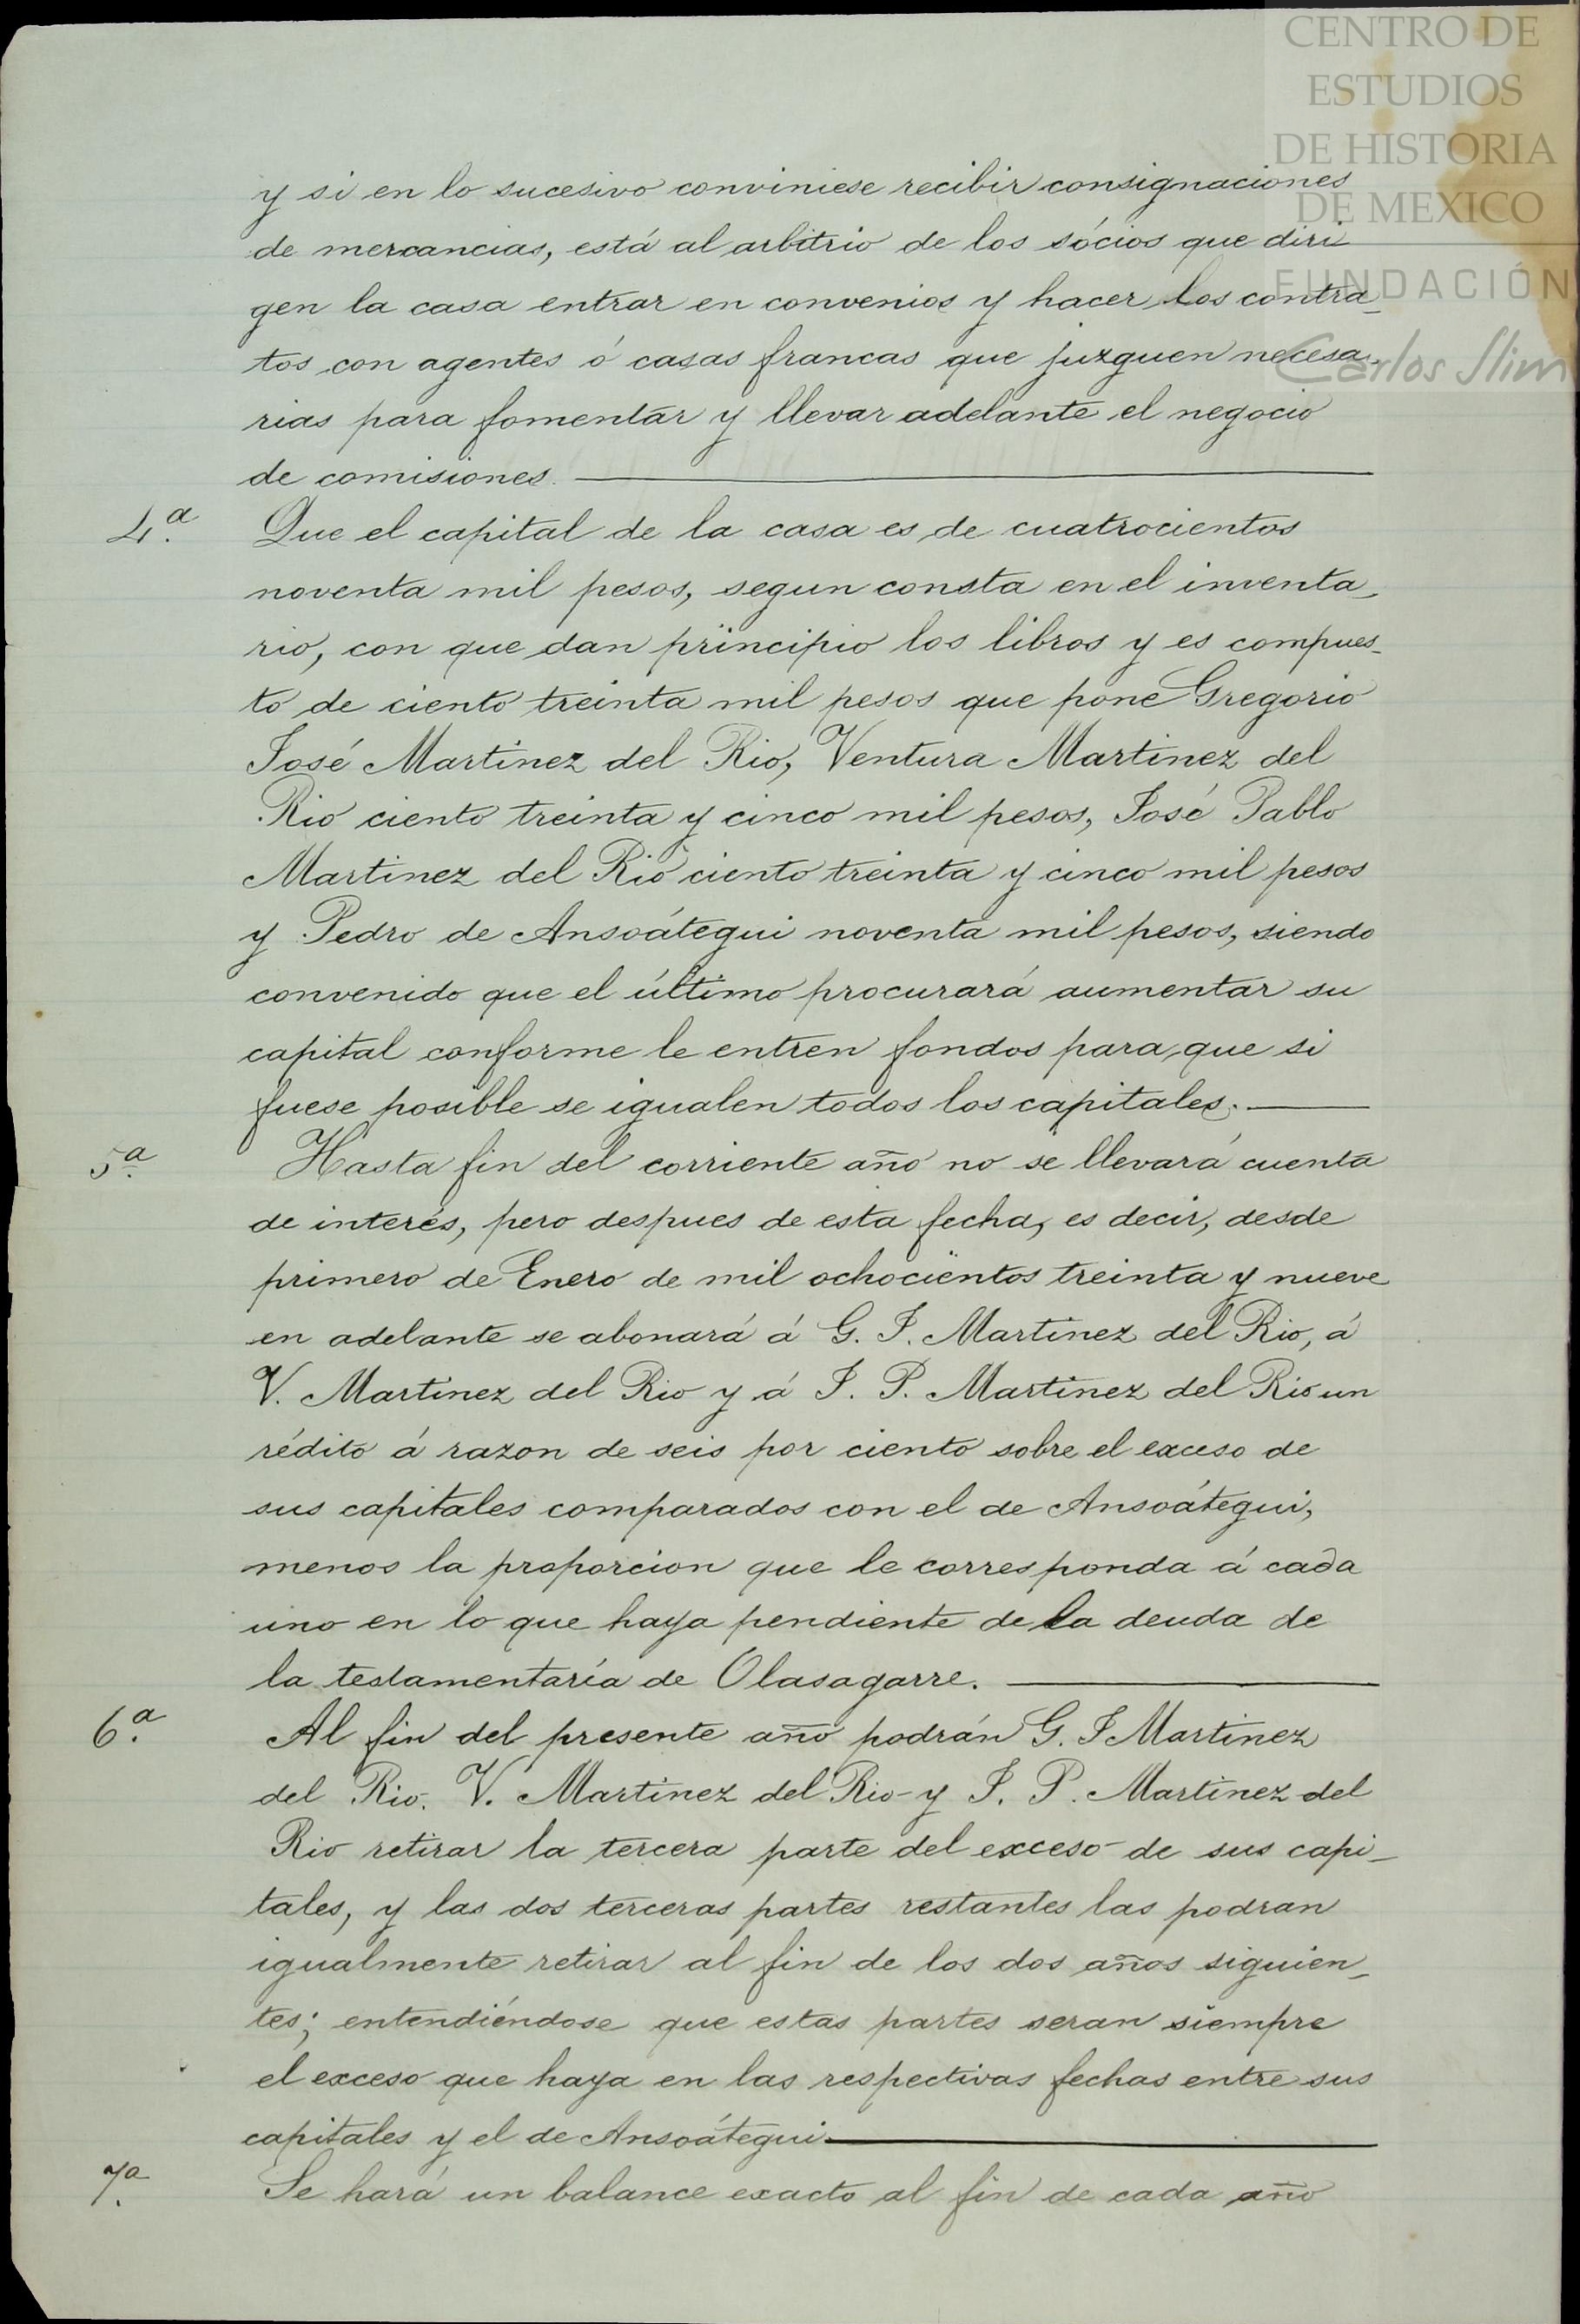 CENTRO DE
ESTUDIOS
DE HISTORIA
DE MEXICO
FUNDACIÓN
Carlos Slim
y si en lo sucesivo conviniese recibir consignaciones
de mercancias, está al arbitrio de los sócios que diri
gen la casa entrar en convenios y hacer los contra_
tos con agentes ó casas francas que juzguen necesa_
rias para fomentar y llevar adelante el negocio
de comisiones.
4.ª Que el capital de la casa es de cuatrocientos
noventa mil pesos, segun consta en el inventa_
rio, con que dan principio los libros y es compues_
to de ciento treinta mil pesos que pone Gregorio
José Martinez del Rio, Ventura Martinez del
Rio ciento treinta y cinco mil pesos, José Pablo
Martinez del Rio ciento treinta y cinco mil pesos
y Pedro de Ansoátegui noventa mil pesos, siendo
convenido que el último procurará aumentar su
capital conforme le entren fondos para que si
fuese posible se igualen todos los capitales.
5.ª Hasta fin del corriente año no se llevará cuenta
de interés, pero despues de esta fecha, es decir, desde
primero de Enero de mil ochocientos treinta y nueve
en adelante se abonará á G. J. Martinez del Rio, á
V. Martinez del Rio y á J. P. Martinez del Rio un
rédito á razon de seis por ciento sobre el exceso de
sus capitales comparados con el de Ansoátegui,
menos la proporcion que le corresponda á cada
uno en lo que haya pendiente de la deuda de
la testamentaría de Olasagarre.
6.ª Al fin del presente año podrán G. J Martinez
del Rio. V. Martinez del Rio y J. P. Martinez del
Rio retirar la tercera parte del exceso de sus capi_
tales, y las dos terceras partes restantes las podran
igualmente retirar al fin de los dos años siguien_
tes; entendiéndose que estas partes seran siempre
el exceso que haya en las respectivas fechas entre sus
capitales y el de Ansoátegui.
7.ª Se hará un balance exacto al fin de cada año